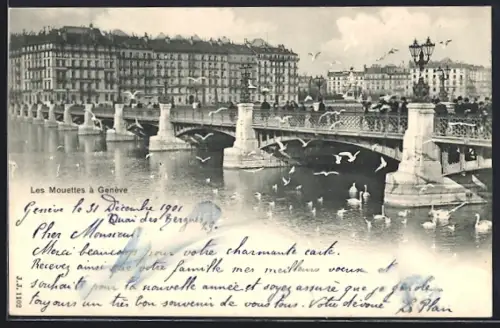 Les Mouettes à Genève
Genève le 31 Décembre 1901
Quai des Bergues 29.
Cher Monsieur
Merci beaucoup pour votre charmante carte.
Recevez ainsi que votre famille mes meilleurs voeux et
souhaits pour la nouvelle année et soyez assuré que je garde
toujours un très bon souvenir de vous tous. Votre dévoué
J.J. 1102